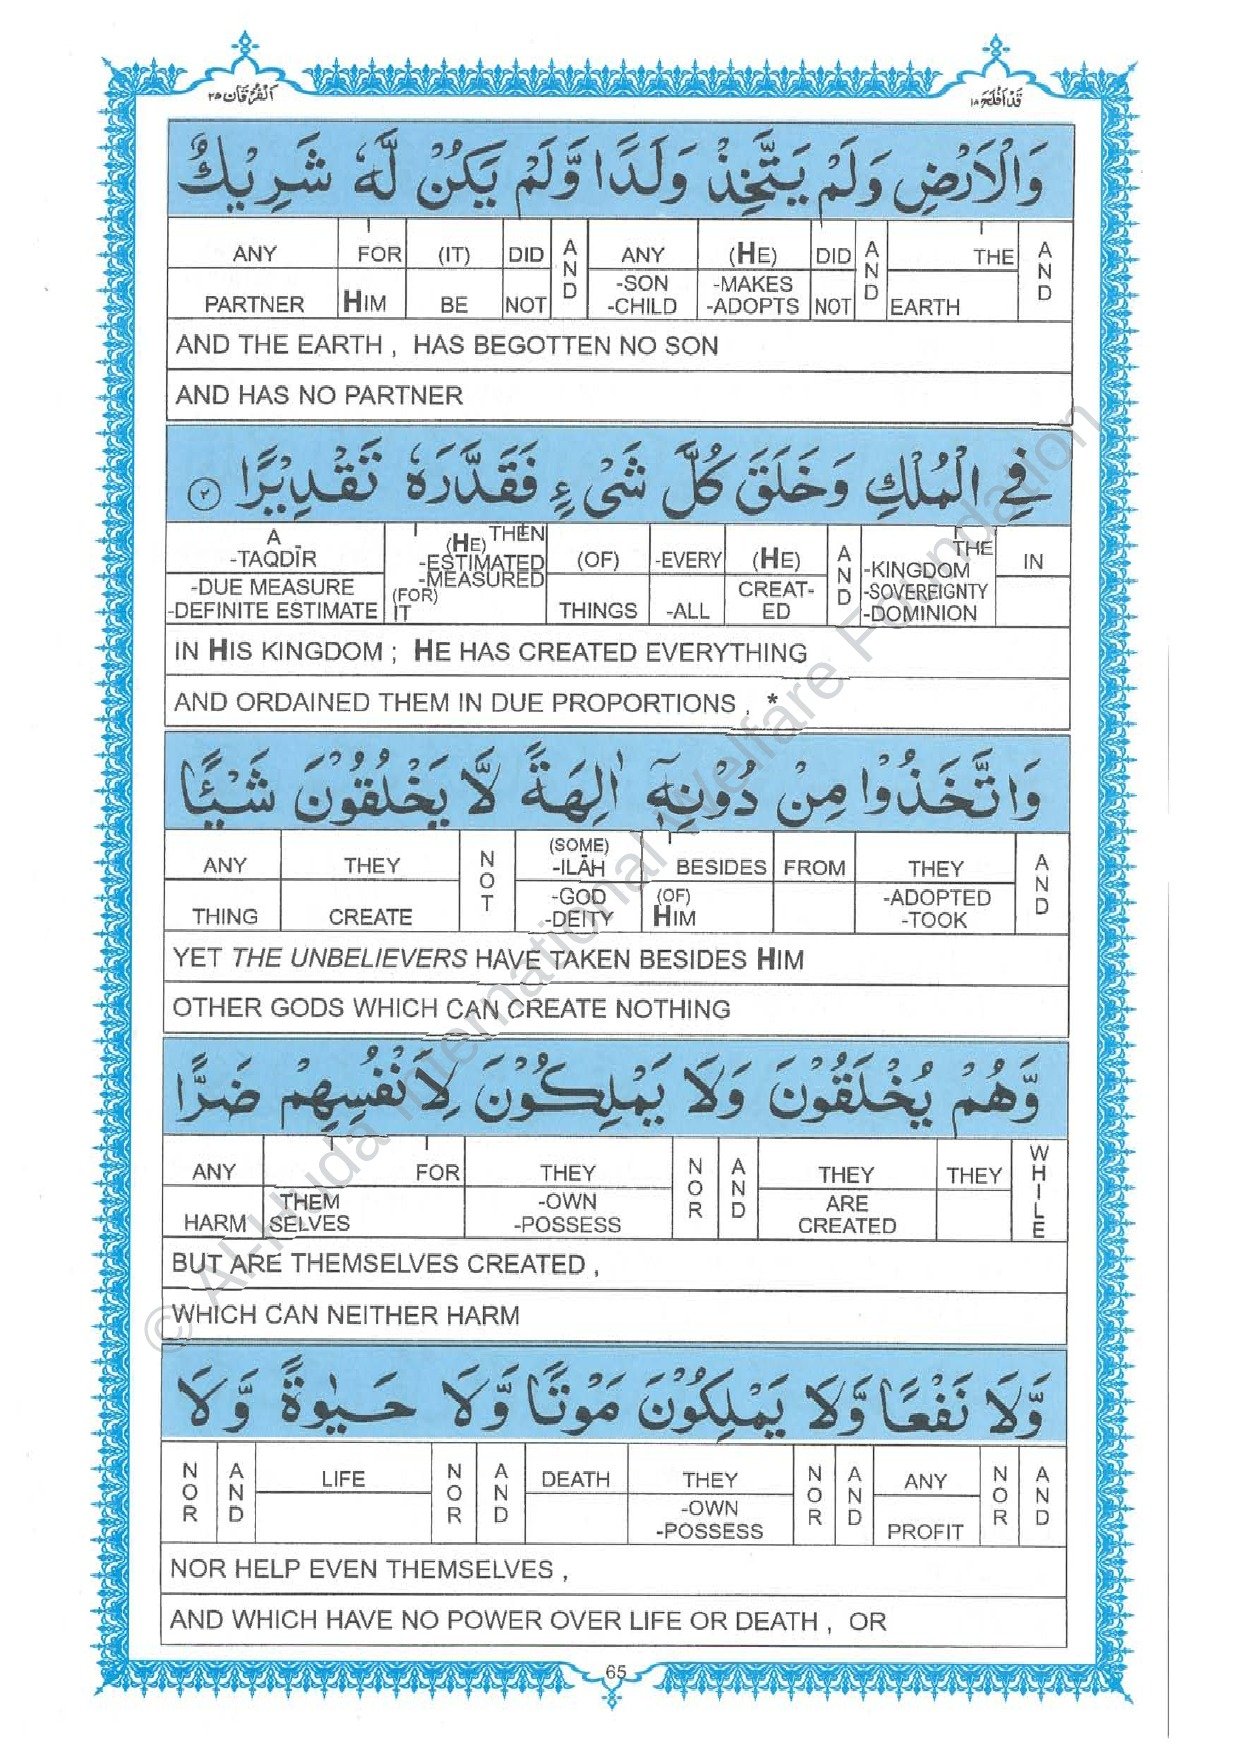 قَدْ اَفْلَحَ ١٨
اَلْفُرْقَان ٢٥
وَالْاَرْضِ وَلَمْ يَتَّخِذْ وَلَدًا وَّلَمْ يَكُنْ لَّهٗ شَرِيْكٌ
AND THE EARTH AND DID NOT (HE) -MAKES -ADOPTS ANY -SON -CHILD AND DID NOT (IT) BE FOR HIM ANY PARTNER
AND THE EARTH , HAS BEGOTTEN NO SON
AND HAS NO PARTNER
فِي الْمُلْكِ وَخَلَقَ كُلَّ شَيْءٍ فَقَدَّرَهٗ تَقْدِيْرًا ٢
IN THE -KINGDOM -SOVEREIGNTY -DOMINION AND (HE) CREAT-ED -EVERY -ALL (OF) THINGS THEN (HE) -ESTIMATED -MEASURED (FOR) IT A -TAQDĪR -DUE MEASURE -DEFINITE ESTIMATE
IN HIS KINGDOM ; HE HAS CREATED EVERYTHING
AND ORDAINED THEM IN DUE PROPORTIONS , *
وَاتَّخَذُوْا مِنْ دُوْنِهٖٓ اٰلِهَةً لَّا يَخْلُقُوْنَ شَيْـًٔا
AND THEY -ADOPTED -TOOK FROM BESIDES (OF) HIM (SOME) -ILĀH -GOD -DEITY NOT THEY CREATE ANY THING
YET THE UNBELIEVERS HAVE TAKEN BESIDES HIM
OTHER GODS WHICH CAN CREATE NOTHING
وَّهُمْ يُخْلَقُوْنَ وَلَا يَمْلِكُوْنَ لِاَنْفُسِهِمْ ضَرًّا
WHILE THEY THEY ARE CREATED AND NOR THEY -OWN -POSSESS FOR THEM SELVES ANY HARM
BUT ARE THEMSELVES CREATED ,
WHICH CAN NEITHER HARM
وَّلَا نَفْعًا وَّلَا يَمْلِكُوْنَ مَوْتًا وَّلَا حَيٰوةً وَّلَا
AND NOR ANY PROFIT AND NOR THEY -OWN -POSSESS DEATH AND NOR LIFE AND NOR
NOR HELP EVEN THEMSELVES ,
AND WHICH HAVE NO POWER OVER LIFE OR DEATH , OR
65
© Al-Huda International Welfare Foundation